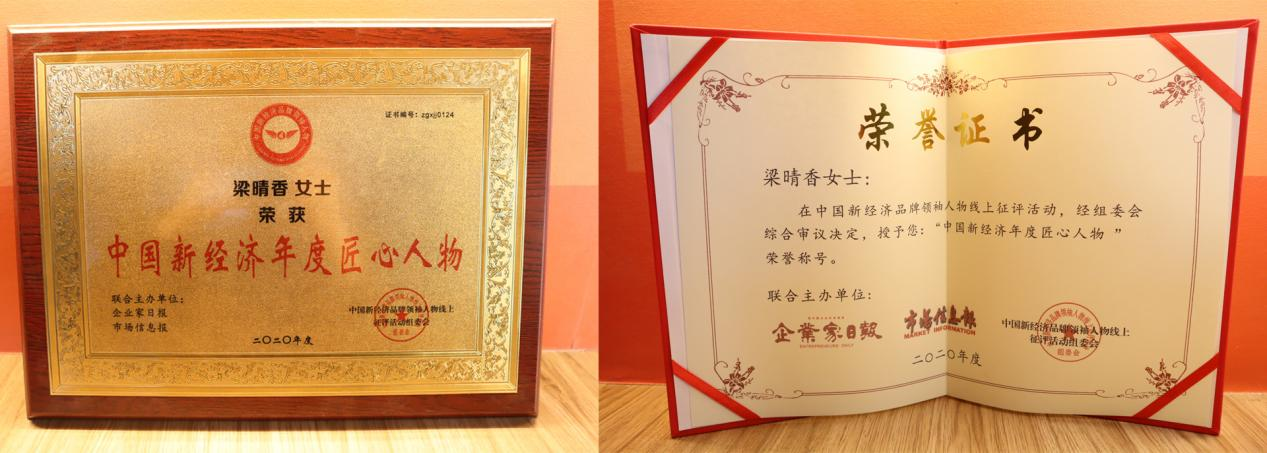 证书编号：zgxjj0124
梁晴香 女士
荣 获
中国新经济年度匠心人物
联合主办单位：
企业家日报
市场信息报
中国新经济品牌领袖人物线上
征评活动组委会
二〇二〇年度
荣誉证书
梁晴香女士：
在中国新经济品牌领袖人物线上征评活动，经组委会
综合审议决定，授予您：“中国新经济年度匠心人物 ”
荣誉称号。
联合主办单位：
企業家日報
ENTREPRENEURS' DAILY
市场信息报
MARKET INFORMATION
中国新经济品牌领袖人物线上
征评活动组委会
组委会
二〇二〇年度